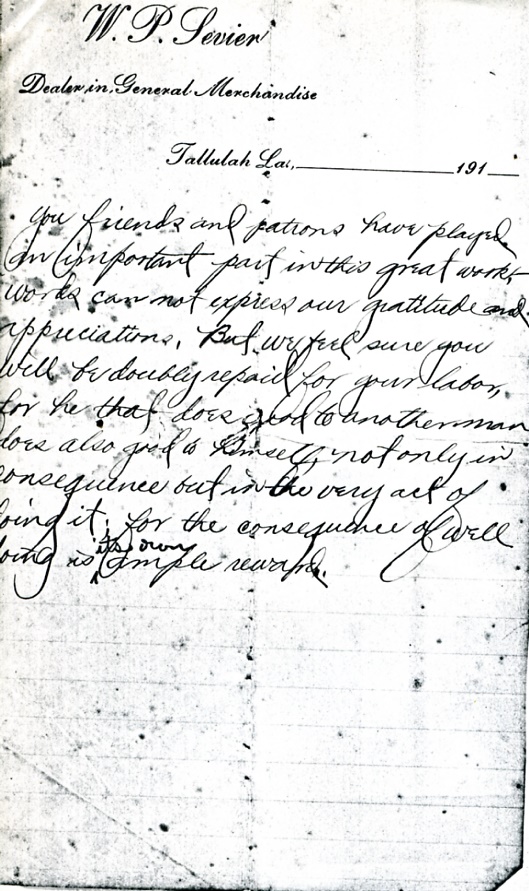 W. P. Sevier
Dealer in General Merchandise
Tallulah La., 191
you friends and patrons have played
an important part in this great work,
works can not express our gratitude and
appreciations. But we feel sure you
will be doubly repaid for your labor,
for he that does good to another man
does also good to himself, not only in
consequence but in the very act of
doing it; for the consequence of well
doing is its own ample reward.